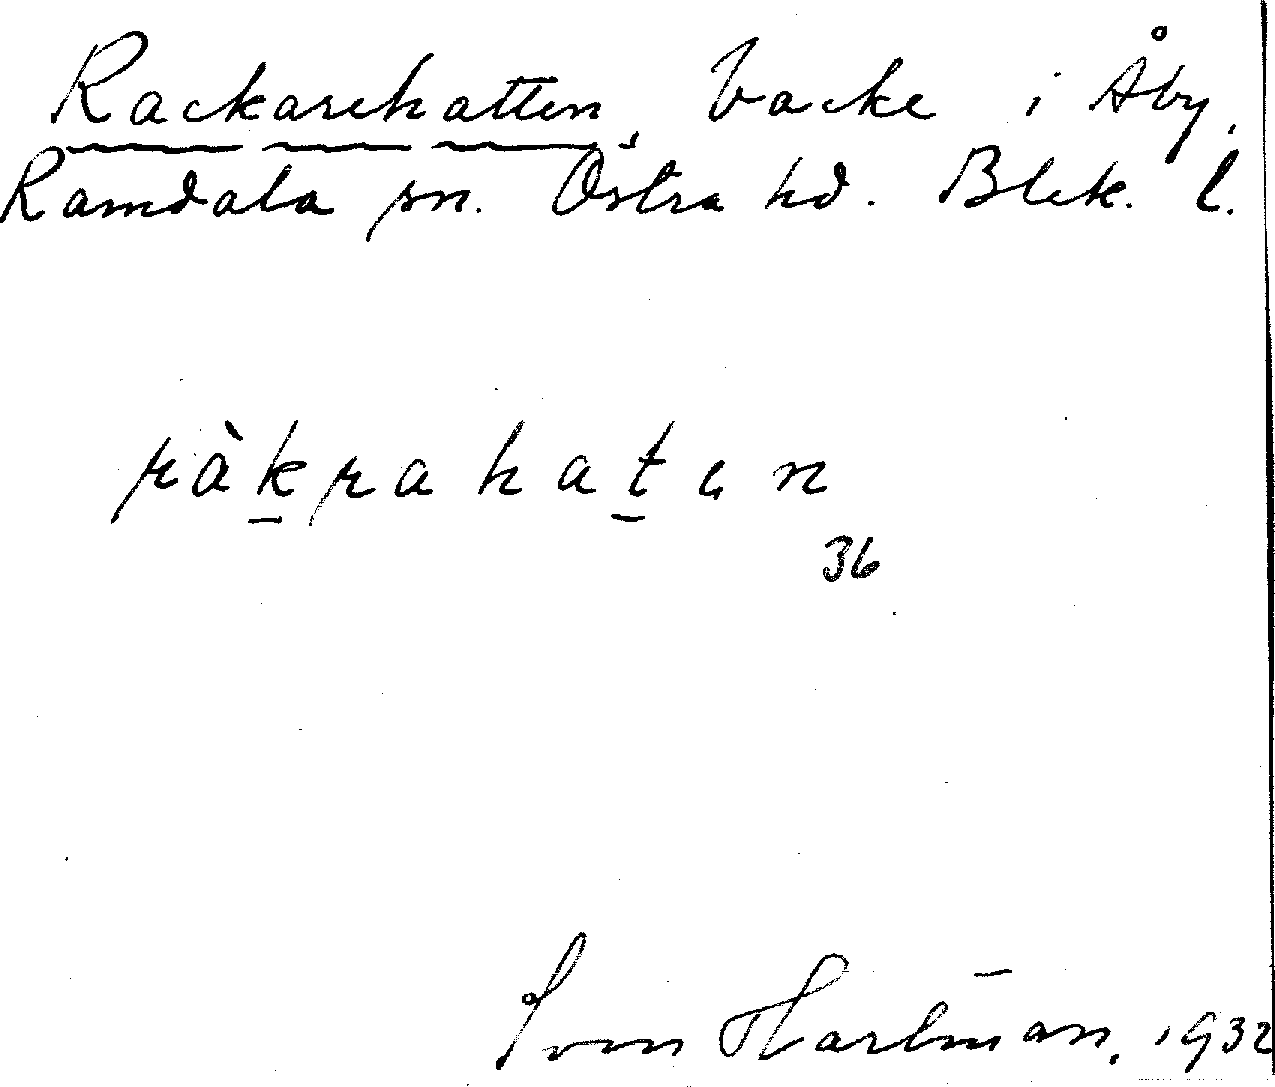 Rackarehatten, backe i Åby,
Ramdala sn. Östra hd. Blek. l.
ràkrahatən
36
Sven Hartman, 1932